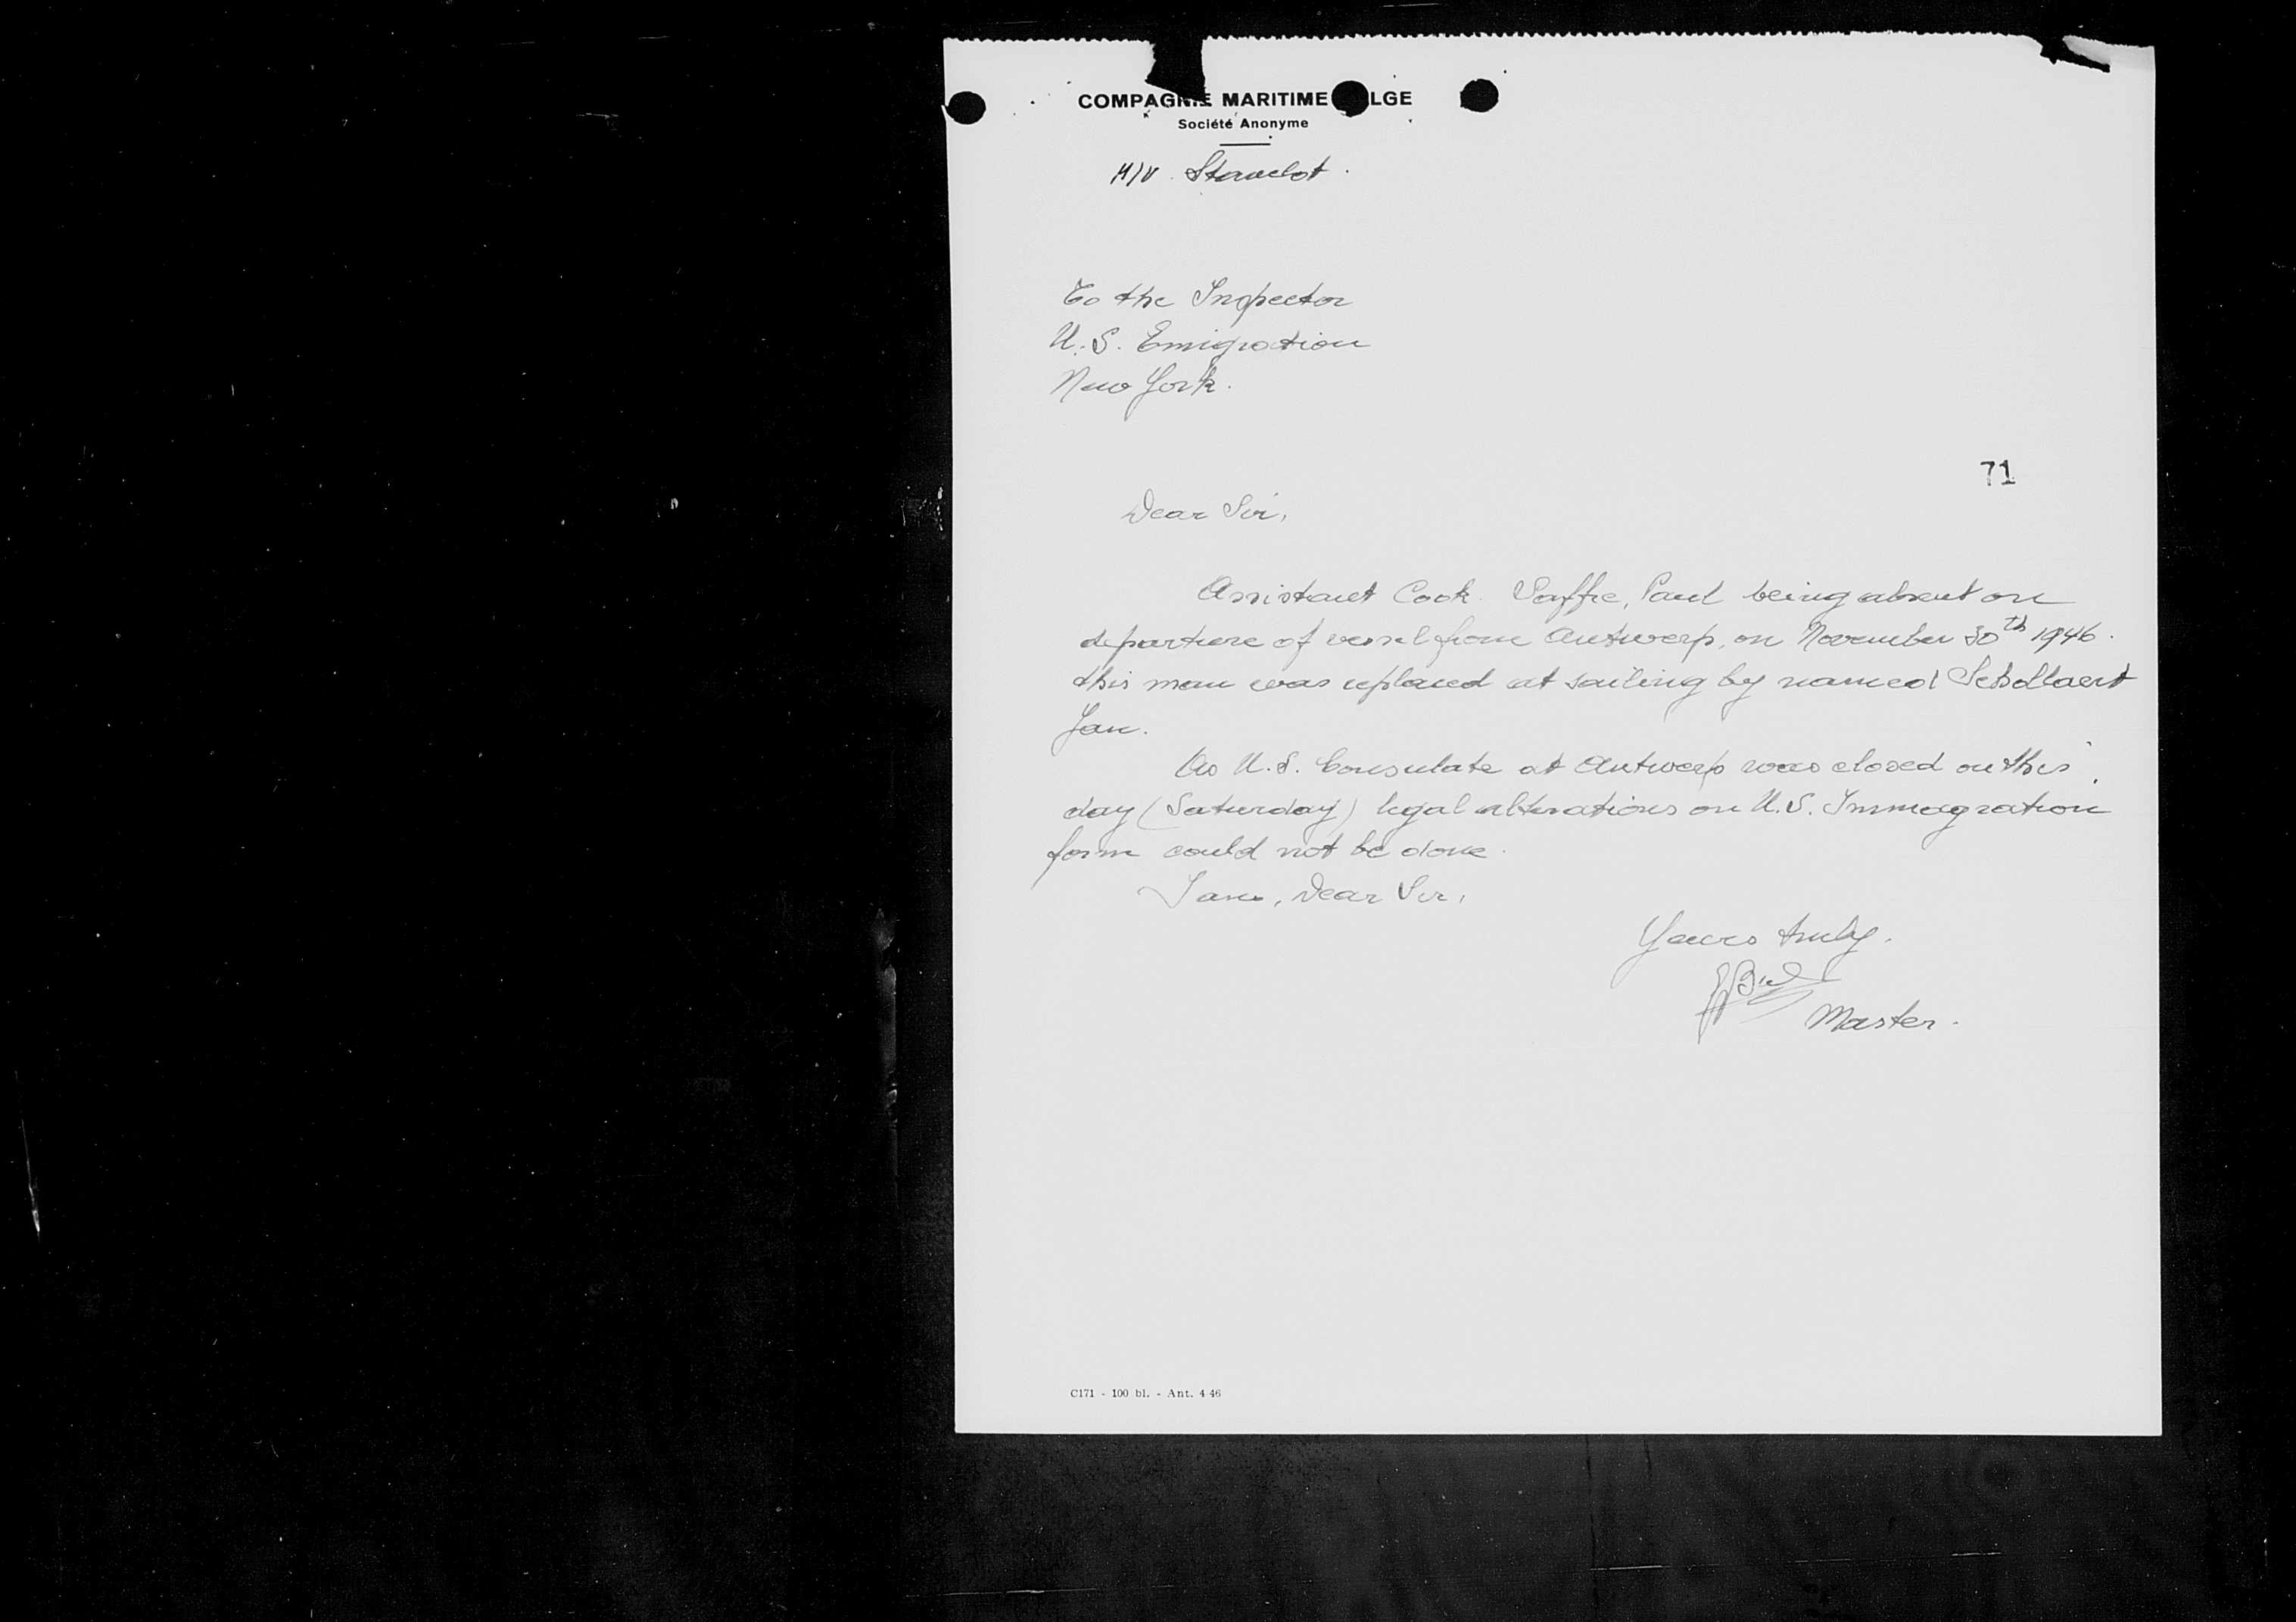 COMPAGNIE MARITIME LGE
Société Anonyme
M/V Stavelot.
To the Inspector
U.S. Emigration
New York.
71
Dear Sir,
Assistant Cook Saffre, Paul being absent on
departure of vessel from Antwerp, on November 30th 1946.
this man was replaced at sailing by named Schollaert
Jan.
As U.S. Consulate at Antwerp was closed on this
day (Saturday) legal alterations on U.S. Immagration
form could not be done.
I am, Dear Sir,
Yours truly.
Master.
C171 - 100 bl. - Ant. 4-46